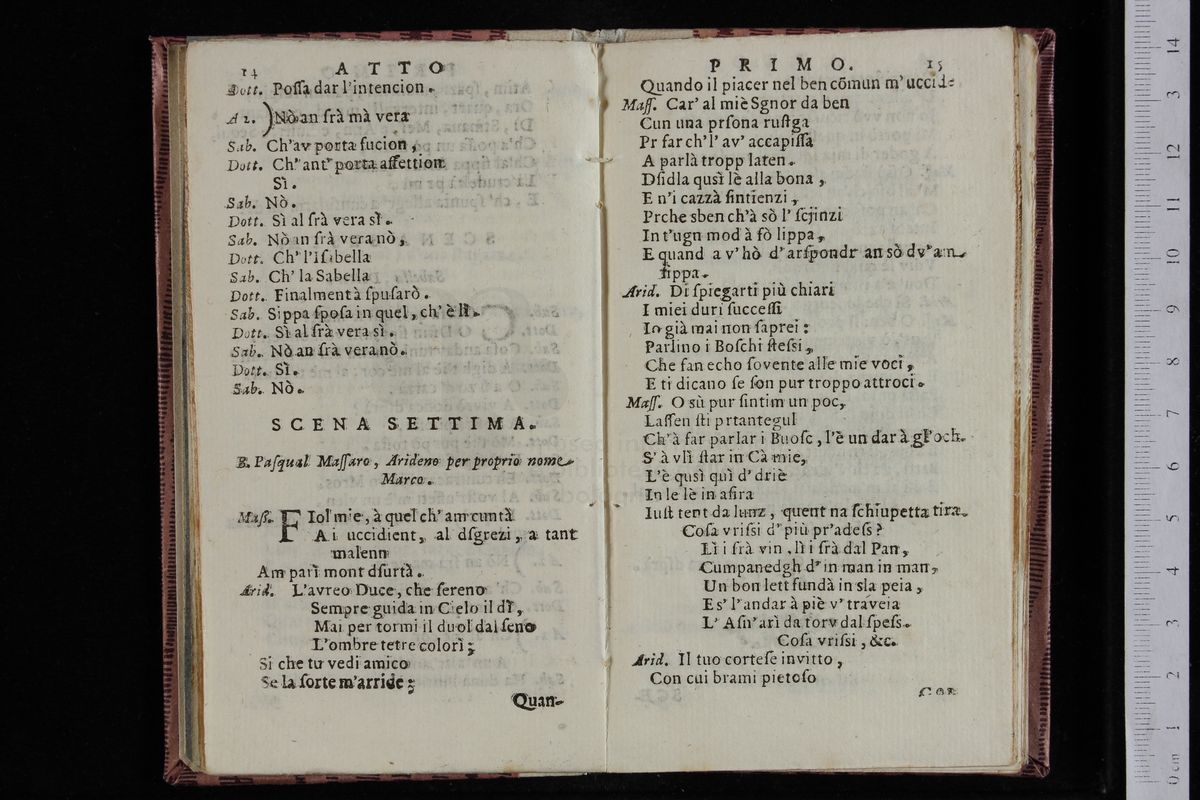 14 ATTO
Dott. Poſſa dar l'intencion.
A 2. )Nò an ſrà mà vera
Sab. Ch'av porta ſucion,
Dott. Ch'ant' porta affettion
Sì.
Sab. Nò.
Dott. Sì al ſrà vera sì.
Sab. Nò an ſrà vera nò,
Dott. Ch' l'Iſabella
Sab. Ch' la Sabella
Dott. Finalment à ſpuſarò.
Sab. Sippa ſpoſa in quel, ch' è lì.
Dott. Sì al ſrà vera sì.
Sab. Nò an ſrà vera nò.
Dott. Sì.
Sab. Nò.
SCENA SETTIMA.
B. Paſqual Maſſaro, Arideno per proprio nome
Marco.
Maſſ. FIol mie, à quel ch' am cuntà
A i uccidient, al dſgrezi, a tant
malenn
Am parì mont dſurtà.
Arid. L'avreo Duce, che ſereno
Sempre guida in Cielo il dì,
Mai per tormi il duol dal ſeno
L'ombre tetre colorì;
Si che tu vedi amico
Se la ſorte m'arride;
Quan-
PRIMO. 15
Quando il piacer nel ben cōmun m'uccide
Maſſ. Car' al miè Sgnor da ben
Cun una prſona ruſtga
Pr far ch'l' av' accapiſſa
A parlà tropp laten.
Dſidla qusì lè alla bona,
E n'i cazzà ſintienzi,
Prche sben ch'à sò l' ſcjinzi
In t'ugn mod à fò lippa,
E quand a v' hò d'arſpondr an sò dv'an
ſippa.
Arid. Di ſpiegarti più chiari
I miei duri ſucceſſi
Io già mai non ſaprei:
Parlino i Boſchi ſteſsi,
Che fan echo ſovente alle mie voci,
E ti dicano ſe ſon pur troppo attroci.
Maſſ. O sù pur ſintim un poc,
Laſſen ſti prtantegul
Ch'à far parlar i Buoſc, l'è un dar à gl'och.
S' à vlì ſtar in Cà mie,
L'è qusì quì d' driè
In le lè in aſira
Iuſt tent da lunz, quent na ſchiupetta tira.
Coſa vriſsi d' più pr'adeſs?
Lì i ſrà vin, lì i ſrà dal Pan,
Cumpanedgh d' in man in man,
Un bon lett fundà in sla peia,
Es' l'andar à piè v' traveia
L' Aſn'arì da torv dal ſpeſs.
Coſa vriſsi, &c.
Arid. Il tuo corteſe invitto,
Con cui brami pietoſo